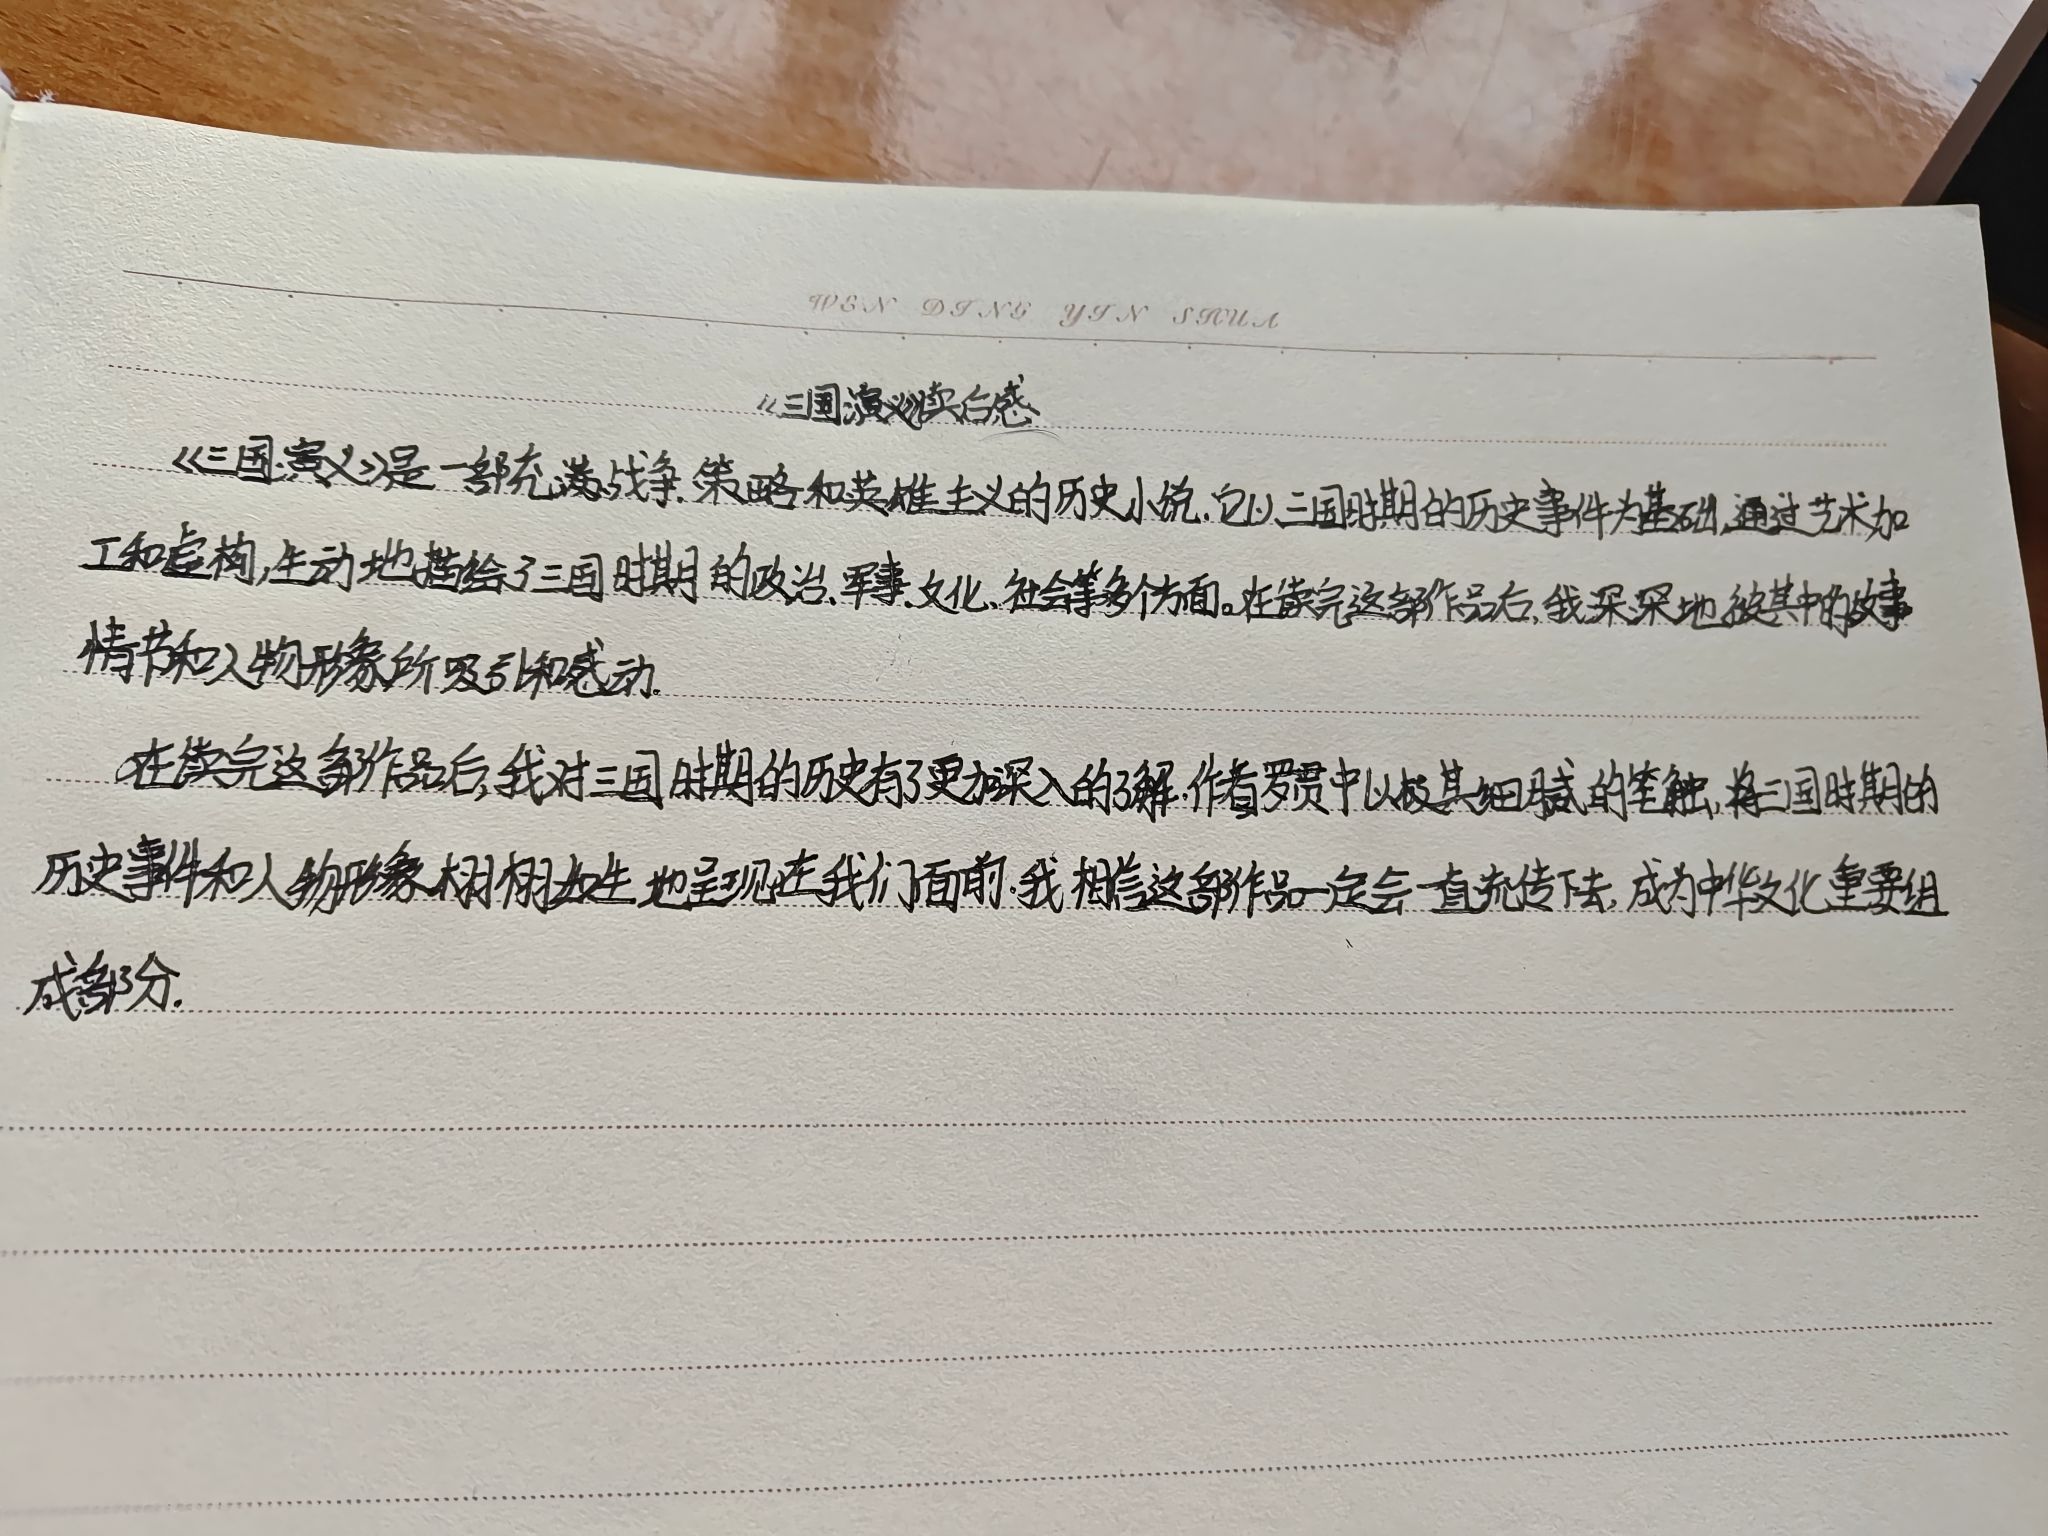 WEN DING YIN SHUA
《三国演义》读后感
《三国演义》是一部充满战争、策略和英雄主义的历史小说.它以三国时期的历史事件为基础,通过艺术加
工和虚构,生动地描绘了三国时期的政治、军事、文化、社会等多个方面。在读完这部作品后,我深深地被其中的故事
情节和人物形象所吸引和感动.
在读完这部作品后,我对三国时期的历史有了更加深入的了解.作者罗贯中以极其细腻的笔触,将三国时期的
历史事件和人物形象栩栩如生地呈现在我们面前.我相信这部作品一定会一直流传下去,成为中华文化重要组
成部分.